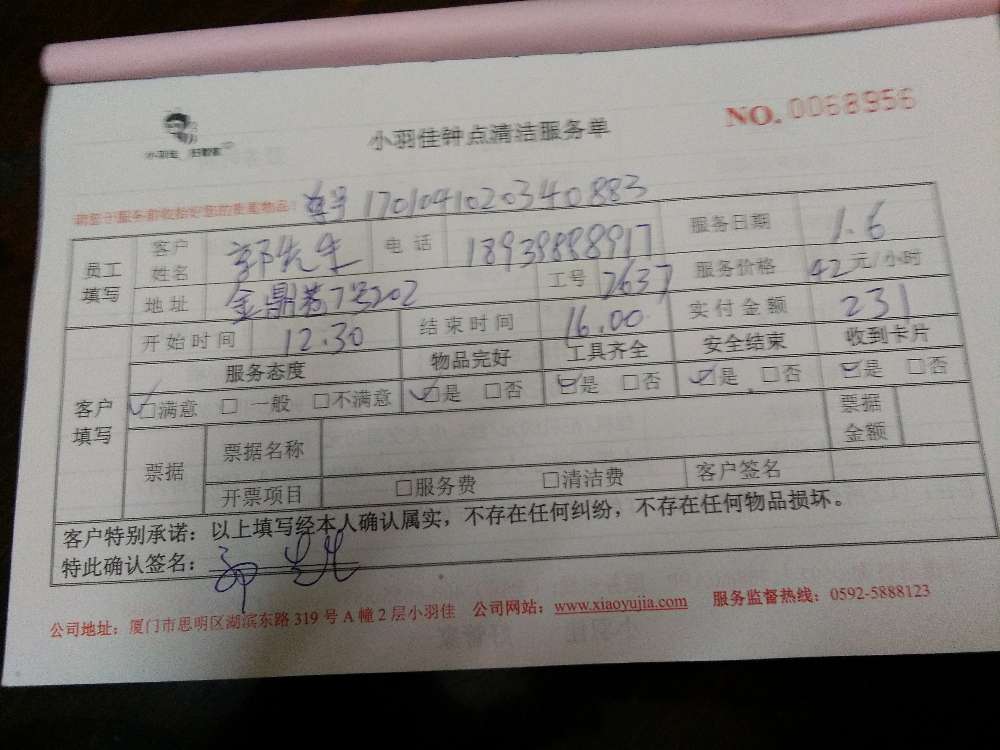 小羽佳 好管家
小羽佳钟点清洁服务单
NO. 0068956
请您于服务前收拾好您的贵重物品!
单号 170104102034 0883
员工填写
客户姓名 郭先生 电话 18939888917 服务日期 1.6
地址 金鼎苑7号202 工号 2637 服务价格 42元/小时
客户填写
开始时间 12.30 结束时间 16.00 实付金额 231
服务态度 物品完好 工具齐全 安全结束 收到卡片
☑满意 □一般 □不满意 ☑是 □否 ☑是 □否 ☑是 □否 ☑是 □否
票据 票据名称 票据金额
开票项目 □服务费 □清洁费 客户签名
客户特别承诺:以上填写经本人确认属实,不存在任何纠纷,不存在任何物品损坏。
特此确认签名:
公司地址:厦门市思明区湖滨东路319号A幢2层小羽佳 公司网站:www.xiaoyujia.com 服务监督热线:0592-5888123